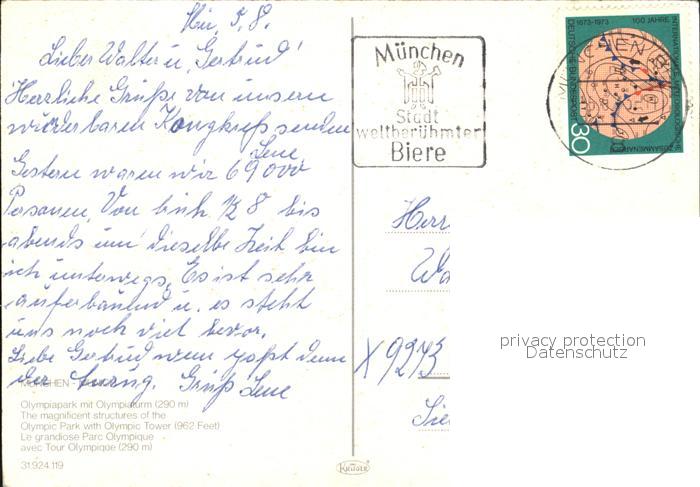 Mü, 5.8.
Lieber Walter u. Gertrud!
Herzliche Grüße von unserm
wunderbaren Kongreß senden
Lene
Gestern waren wir 69000
Personen. Von früh 1/2 8 bis
abends um dieselbe Zeit bin
ich unterwegs. Es ist sehr
auferbauend u. es steht
uns noch viel bevor.
Liebe Gertrud wem paßt denn
der Anzug. Gruß Lene
MÜNCHEN
Olympiapark mit Olympiaturm (290 m)
The magnificent structures of the
Olympic Park with Olympic Tower (962 Feet)
Le grandiose Parc Olympique
avec Tour Olympique (290 m)
31.924.119
KRÜGER
München
Stadt
weltberühmter
Biere
MÜNCHEN
1873-1973 100 JAHRE
INTERNATIONALE METEOROLOGISCHE
ZUSAMMENARBEIT
DEUTSCHE BUNDESPOST
30
Herr
Wa
X 9273
Sie
privacy protection
Datenschutz